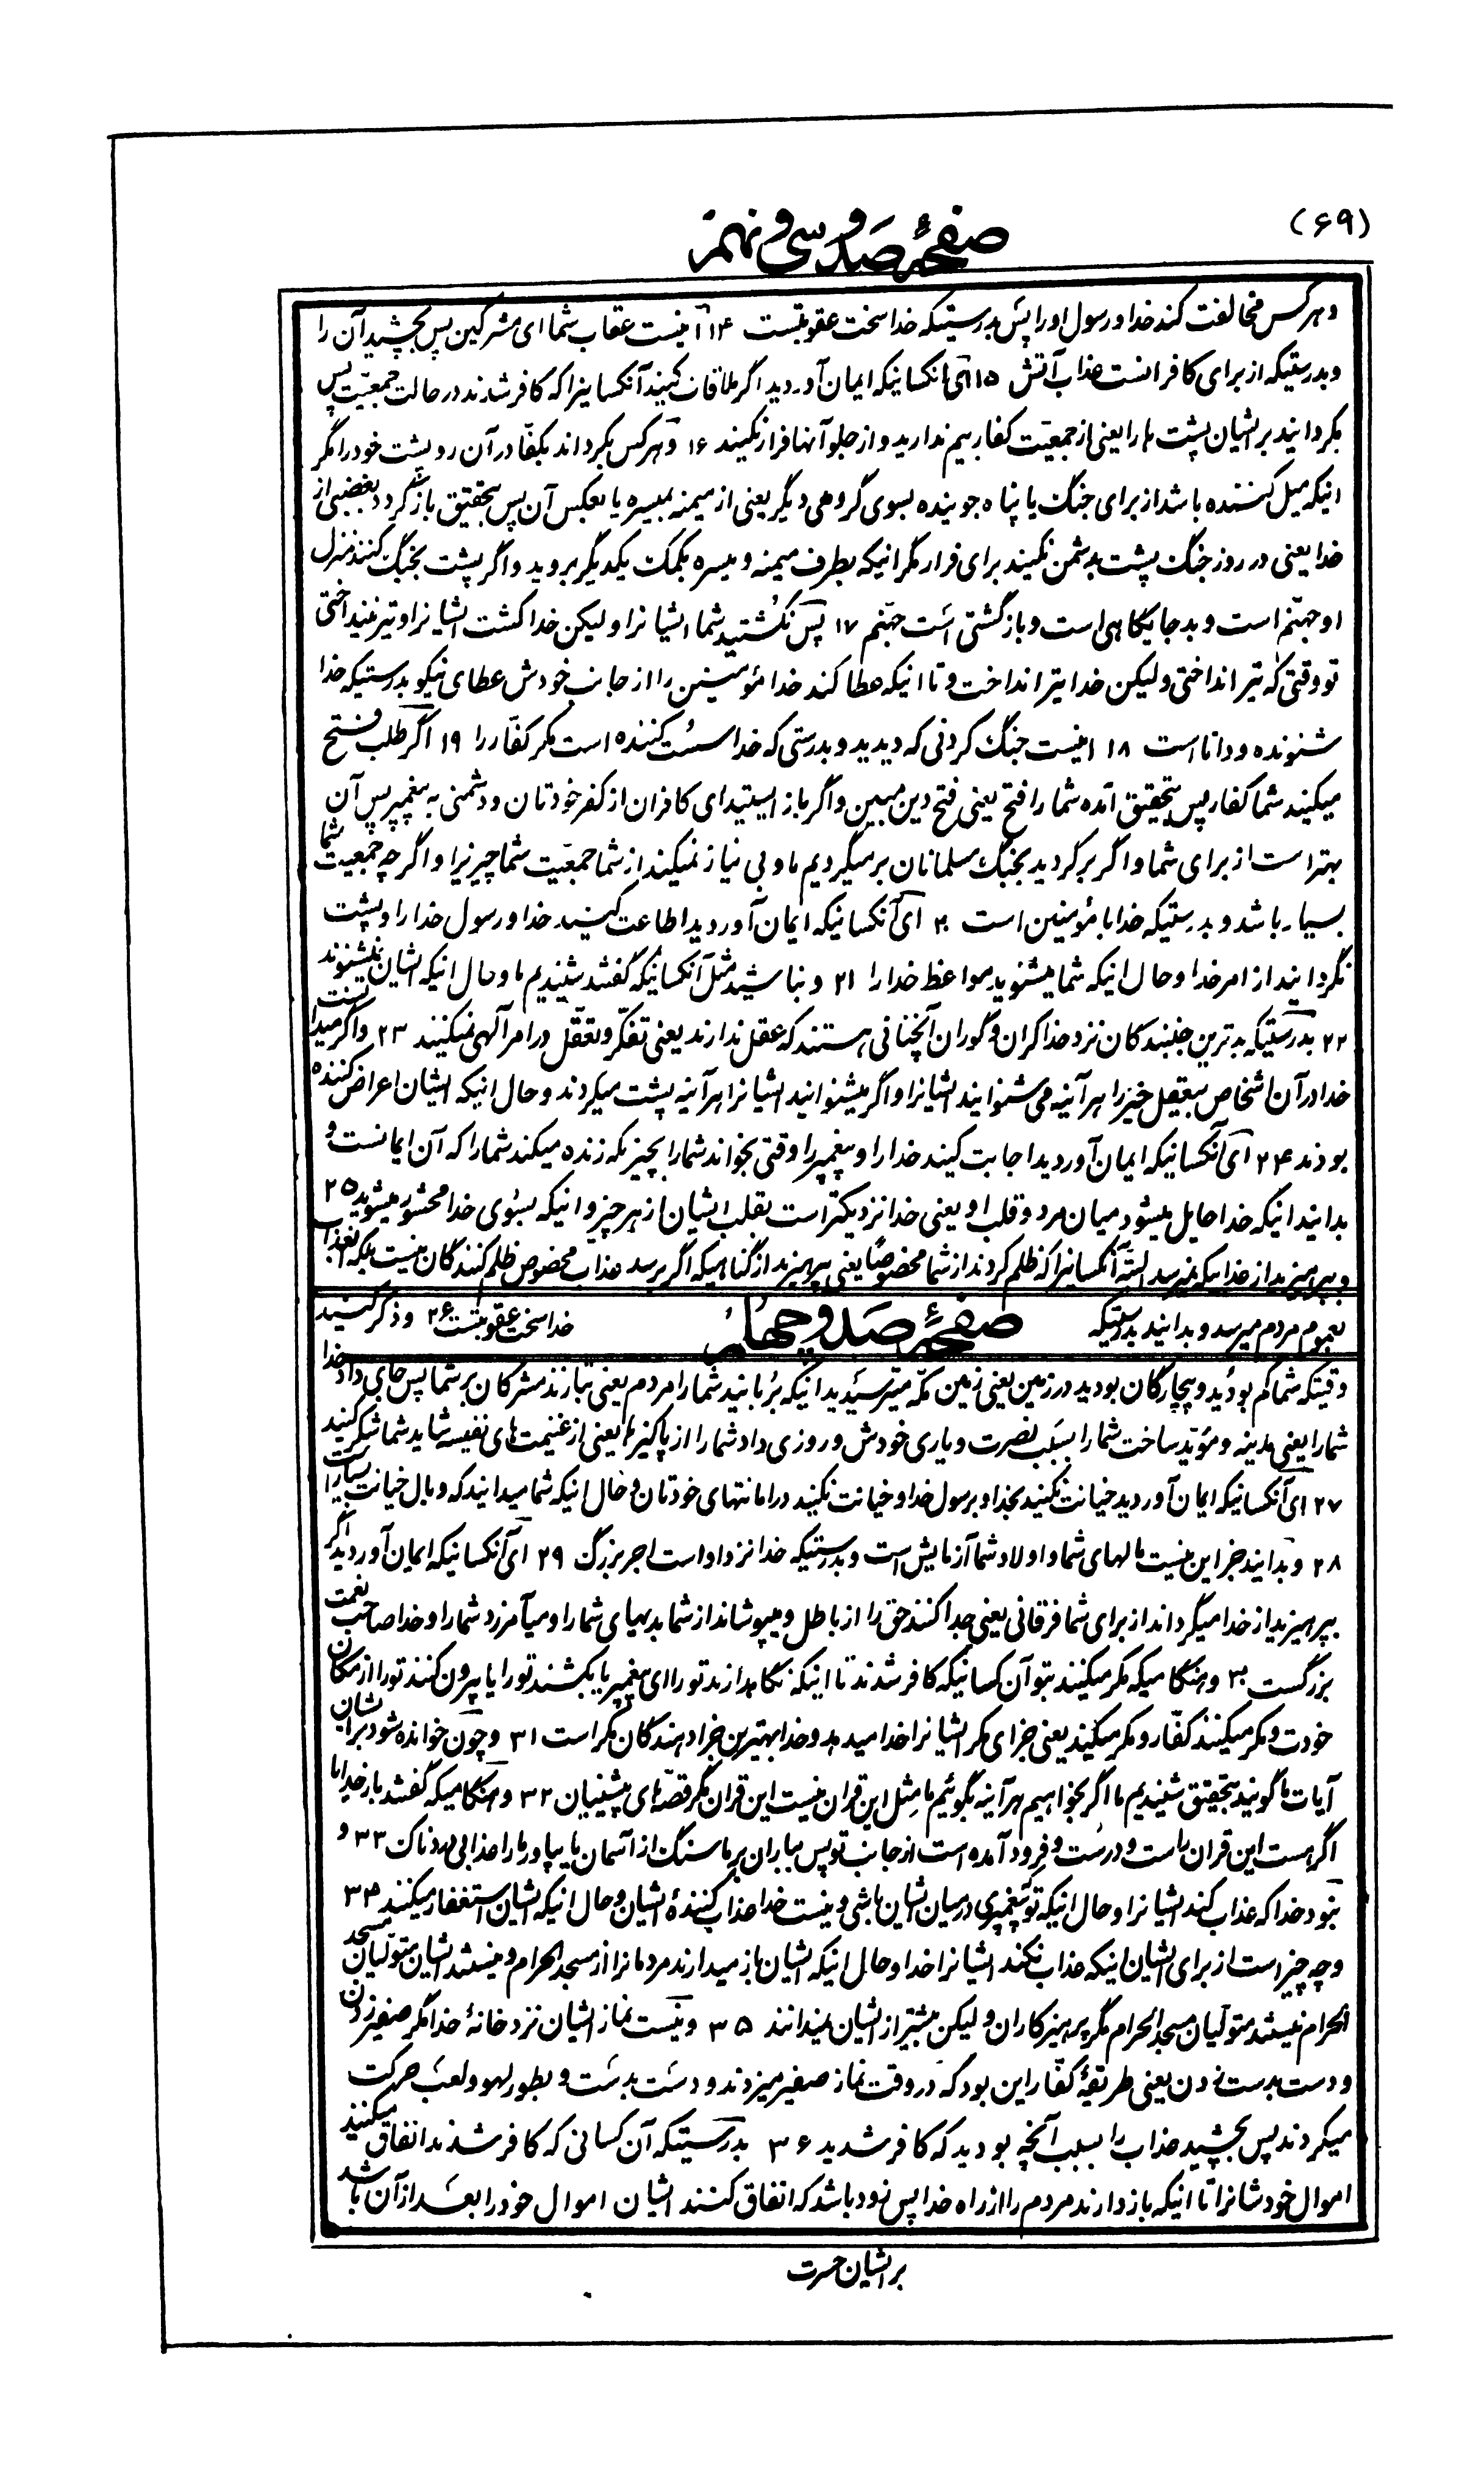 (۶۹)
صفحهٔ صد و سی و نهم
و هر کس مخالفت کند خدا و رسول او را پس بدرستیکه خدا سخت عقوبتست ۱۴ آنیست عقاب شما ای مشرکین پس بچشید آن را
و بدرستیکه از برای کافرانست عذاب آتش ۱۵ ای آنکسانیکه ایمان آوردید اگر ملاقات کنید آنکسانیرا که کافر شدند در حالت جمعیّت پس
بگردانید بر ایشان پشت ها را یعنی از جمعیّت کفار بیم ندارید و از جلو آنها فرار نکنید ۱۶ و هر کس بگرداند بکفّار در آن رو پشت خود را مگر
اینکه میل کننده باشد از برای جنگ یا پناه جوینده بسوی گروهی دیگر یعنی از میمنه بمیسره یا بعکس آن پس بتحقیق باز گردد بغضبی از
خدا یعنی در روز جنگ پشت بدشمن نکنید برای فرار مگر اینکه بطرف میمنه و میسره بکمک یکدیگر بروید و اگر پشت بجنگ کنند منزل
او جهنّم است و بد جایگاهی است و بازگشتی است جهنّم ۱۷ پس نکُشتید شما ایشانرا و لیکن خدا کشت ایشانرا و تیر نینداختی
تو وقتی که تیر انداختی و لیکن خدا تیر انداخت و تا اینکه عطا کند خدا مؤمنین را از جانب خودش عطای نیکو بدرستیکه خدا
شنونده و دانا است ۱۸ اینست جنگ کردنی که دیدید و بدرستی که خدا سست کننده است مکر کفّار را ۱۹ اگر طلب فتح
میکنید شما کفار پس بتحقیق آمده شما را فتح یعنی فتح دین مبین و اگر باز ایستید ای کافران از کفر خودتان و دشمنی به پیغمبر پس آن
بهتر است از برای شما و اگر برگردید بجنگ مسلمانان برمیگردیم ما و بی نیاز نمیکند از شما جمعیّت شما چیزیرا و اگر چه جمعیت شما
بسیار باشد و بدرستیکه خدا با مؤمنین است ۲۰ ای آنکسانیکه ایمان آوردید اطاعت کنید خدا و رسول خدا را و پشت
نگردانید از امر خدا و حال اینکه شما میشنوید مواعظ خدا را ۲۱ و نباشید مثل آنکسانیکه گفتند شنیدیم ما و حال اینکه ایشان نمیشنوند
۲۲ بدرستیکه بدترین جنبندکان نزد خدا کران و گوران آنچنانی هستند که عقل ندارند یعنی تفکّر و تعقّل در امر آلهی نمیکنند ۲۳ و اگر میدانست
خدا در آن اشخاص بیعقل خیر را هر آینه می شنوانید ایشانرا و اگر میشنوانید ایشانرا هر آینه پشت میکردند و حال اینکه ایشان اعراض کننده
بودند ۲۴ ای آنکسانیکه ایمان آوردید اجابت کنید خدا را و پیغمبر را وقتی بخواند شما را بچیزیکه زنده میکند شما را که آن ایمانست و
بدانید اینکه خدا حایل میشود میان مرد و قلب او یعنی خدا نزدیکتر است بقلب ایشان از هر چیز و اینکه بسوی خدا محشور میشوید ۲۵
و بپرهیزید از عذابیکه نمیرسد البتّه آنکسانیرا که ظلم کردند از شما مخصوصًا یعنی بپرهیزید از گناهیکه اگر برسد عذاب مخصوص ظلم کنندگان نیست بلکه آنعذاب
بعموم مردم میرسد و بدانید بدرستیکه
صفحهٔ صد و چهلم
خدا سخت عقوبتست ۲۶ و ذکر کنید
وقتیکه شما کم بودید و بیچارگان بودید در زمین یعنی زمین مکّه میترسیدید اینکه بربایند شما را مردم یعنی بتازند مشرکان بر شما پس جای داد خدا
شما را یعنی مدینه و مؤیّد ساخت شما را بسبب نصرت و یاری خودش و روزی داد شما را از پاکیزها یعنی از غنیمت های نفیسه شاید شما شکر کنید
۲۷ ای آنکسانیکه ایمان آوردید خیانت نکنید بخدا و برسول خدا و خیانت نکنید در امانتهای خودتان و حال اینکه شما میدانید که و بال خیانت بسیار است
۲۸ و بدانید جز این نیست مالهای شما و اولاد شما آزمایش است و بدرستیکه خدا نزد او است اجر بزرگ ۲۹ ای آنکسانیکه ایمان آوردید اگر
بپرهیزید از خدا میگرداند از برای شما فرقانی یعنی جدا کنند حق را از باطل و میپوشاند از شما بدیهای شما را و میآمرزد شما را و خدا صاحب نعمت
بزرگست ۳۰ و هنگامیکه مکر میکنند بتو آن کسانیکه کافر شدند تا اینکه نگاهدارند تو را ای پیغمبر یا بکشند تو را یا بیرون کنند تو را از مکان
خودت و مکر میکنند کفّار و مکر میکنید یعنی جزای مکر ایشانرا خدا میدهد و خدا بهترین جزا دهندگان مکر است ۳۱ و چون خوانده شود بر ایشان
آیات ما گویند بتحقیق شنیدیم ما اگر بخواهیم هر آینه بگوئیم ما مثل این قران نیست این قران مگر قصّه های پیشینیان ۳۲ و هنگامیکه گفتند بار خدایا
اگر هست این قران راست و درست و فرود آمده است از جانب تو پس بباران بر ما سنگ از آسمان یا بیاور ما را عذابی دردناک ۳۳ و
نبود خدا که عذاب کند ایشانرا و حال اینکه تو پیغمبری در میان ایشان باشی و نیست خدا عذاب کنندهٔ ایشان و حال اینکه ایشان استغفار میکنند ۳۴
و چه چیز است از برای ایشان اینکه عذاب نکند ایشانرا خدا و حال اینکه ایشان باز میدارند مردمانرا از مسجد الحرام و نیستند ایشان متولّیان مسجد
الحرام نیستند متولّیان مسجد الحرام مگر پرهیزکاران و لیکن بیشتر از ایشان نمیدانند ۳۵ و نیست نماز ایشان نزد خانهٔ خدا مگر صفیر زدن
و دست بدست زدن یعنی طریقهٔ کفّار این بود که در وقت نماز صفیر میزدند و دست بدست و بطور لهو و لعب حرکت
میکردند پس بچشید عذاب را بسبب آنچه بودید که کافر شدید ۳۶ بدرستیکه آن کسانی که کافر شدند انفاق میکنند
اموال خودشانرا تا اینکه بازدارند مردم را از راه خدا پس زود باشد که انفاق کنند ایشان اموال خود را بعد از آن باشد
بر ایشان حسرت